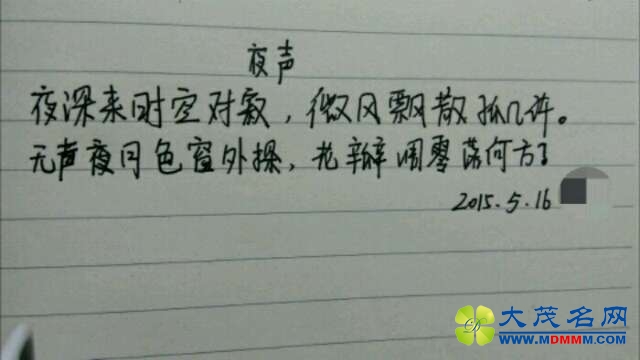 夜声
夜深来时空对寂，微风飘散孤几许。
无声夜月色窗外探，花瓣凋零落何方？
2015.5.16
大茂名网
WWW.MDMMM.COM